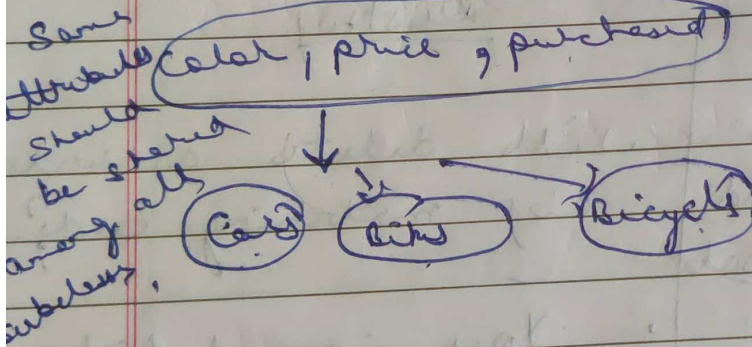 Same
attributes
should
be shared
among all
subclass.
Color, price, purchased
Cars
Bikes
Bicycles